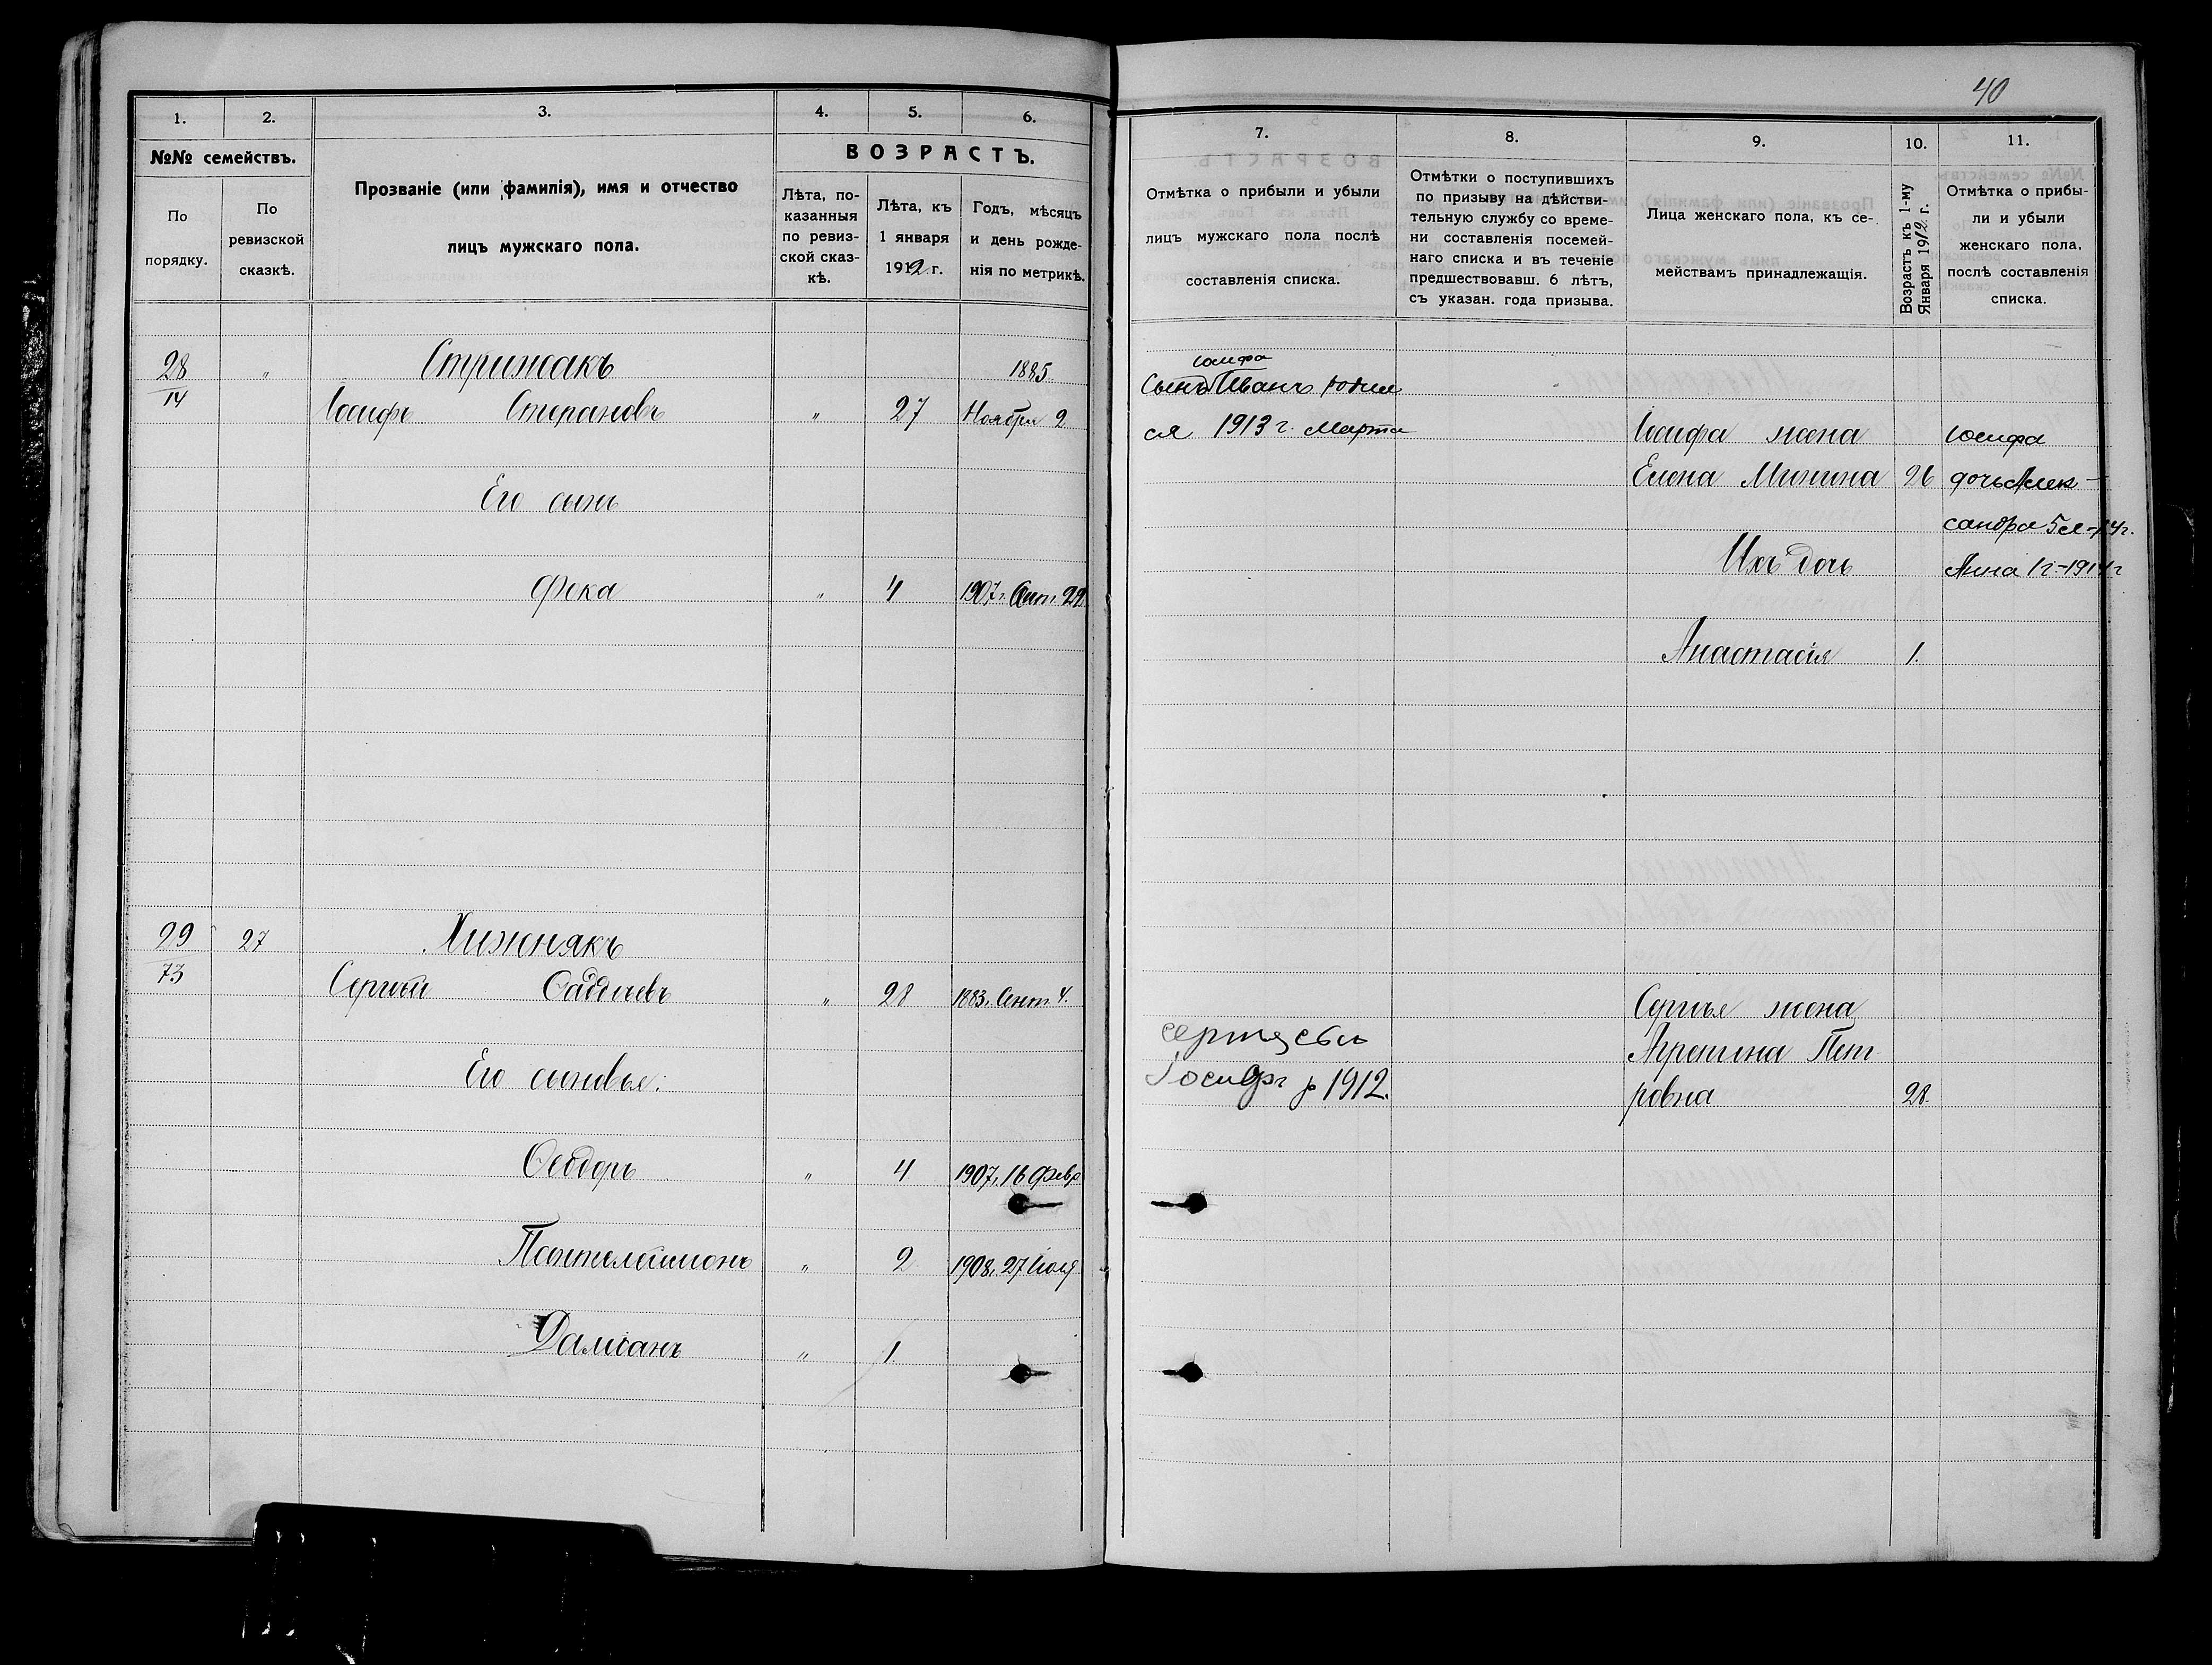 40
1. 2. 3. 4. 5. 6.
№№ семействъ.
По порядку.
По ревизской сказкѣ.
Прозваніе (или фамилія), имя и отчество
лицъ мужскаго пола.
ВОЗРАСТЪ.
Лѣта, по-
казанныя
по ревиз-
ской сказ-
кѣ.
Лѣта, къ
1 января
1912 г.
Годъ, мѣсяцъ
и день рожде-
нія по метрикѣ.
28 „ Стрижакъ 1885
14 Іосифъ Стефановъ „ 27 Ноября 2
Его сынъ
Фока „ 4 1907 г. Сент. 22
29 27 Хижнякъ
73 Сергѣй Фаддѣевъ „ 28 1883, Сент 4.
Его сыновья:
Ѳеодоръ „ 4 1907, 16 Февр
Пантелеимонъ „ 2 1908, 27 Іюля
Даміанъ „ 1
7. 8. 9. 10. 11.
Отмѣтка о прибыли и убыли
лицъ мужскаго пола послѣ
составленія списка.
Отмѣтки о поступившихъ
по призыву на дѣйстви-
тельную службу со време-
ни составленія посемей-
наго списка и въ теченіе
предшествовавш. 6 лѣтъ,
съ указан. года призыва.
Лица женскаго пола, къ се-
мействамъ принадлежащія.
Возрастъ къ 1-му
Января 1912 г.
Отмѣтка о прибы-
ли и убыли
женскаго пола,
послѣ составленія
списка.
Іосифа
Сынъ Иванъ родил
ся 1913 г. Марта
Іосифа жена
Елена Минина 26
Ихъ дочь
Анастасія 1.
Іосифа
дочь Алек-
сандра 5 л-14 г.
Анна 1 г-1914 г
Сергѣя жена
Агрепина Пет-
ровна 28.
р 1912.